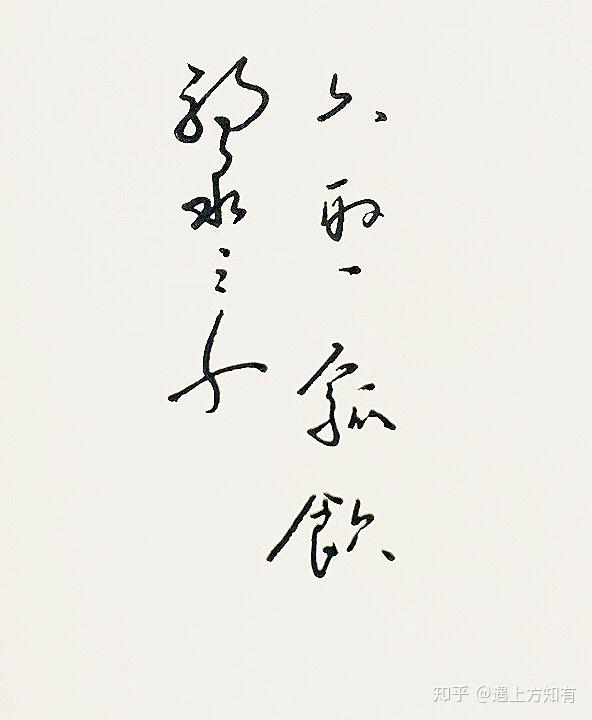 弱水三千
只取一瓢飲
知乎 @遇上方知有